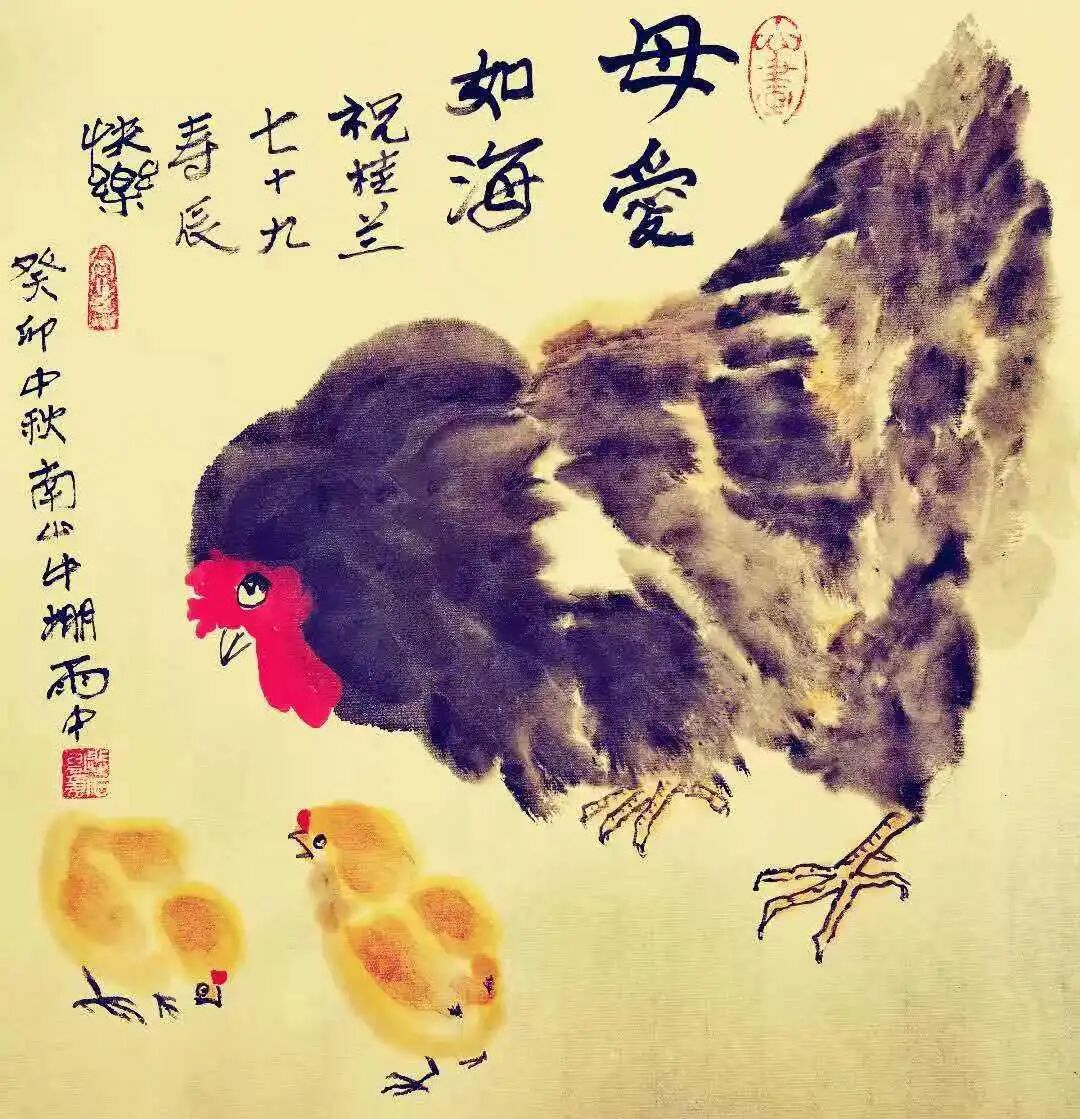 母愛
如海
祝桂兰
七十九
寿辰
快樂
癸卯中秋南山牛棚雨中